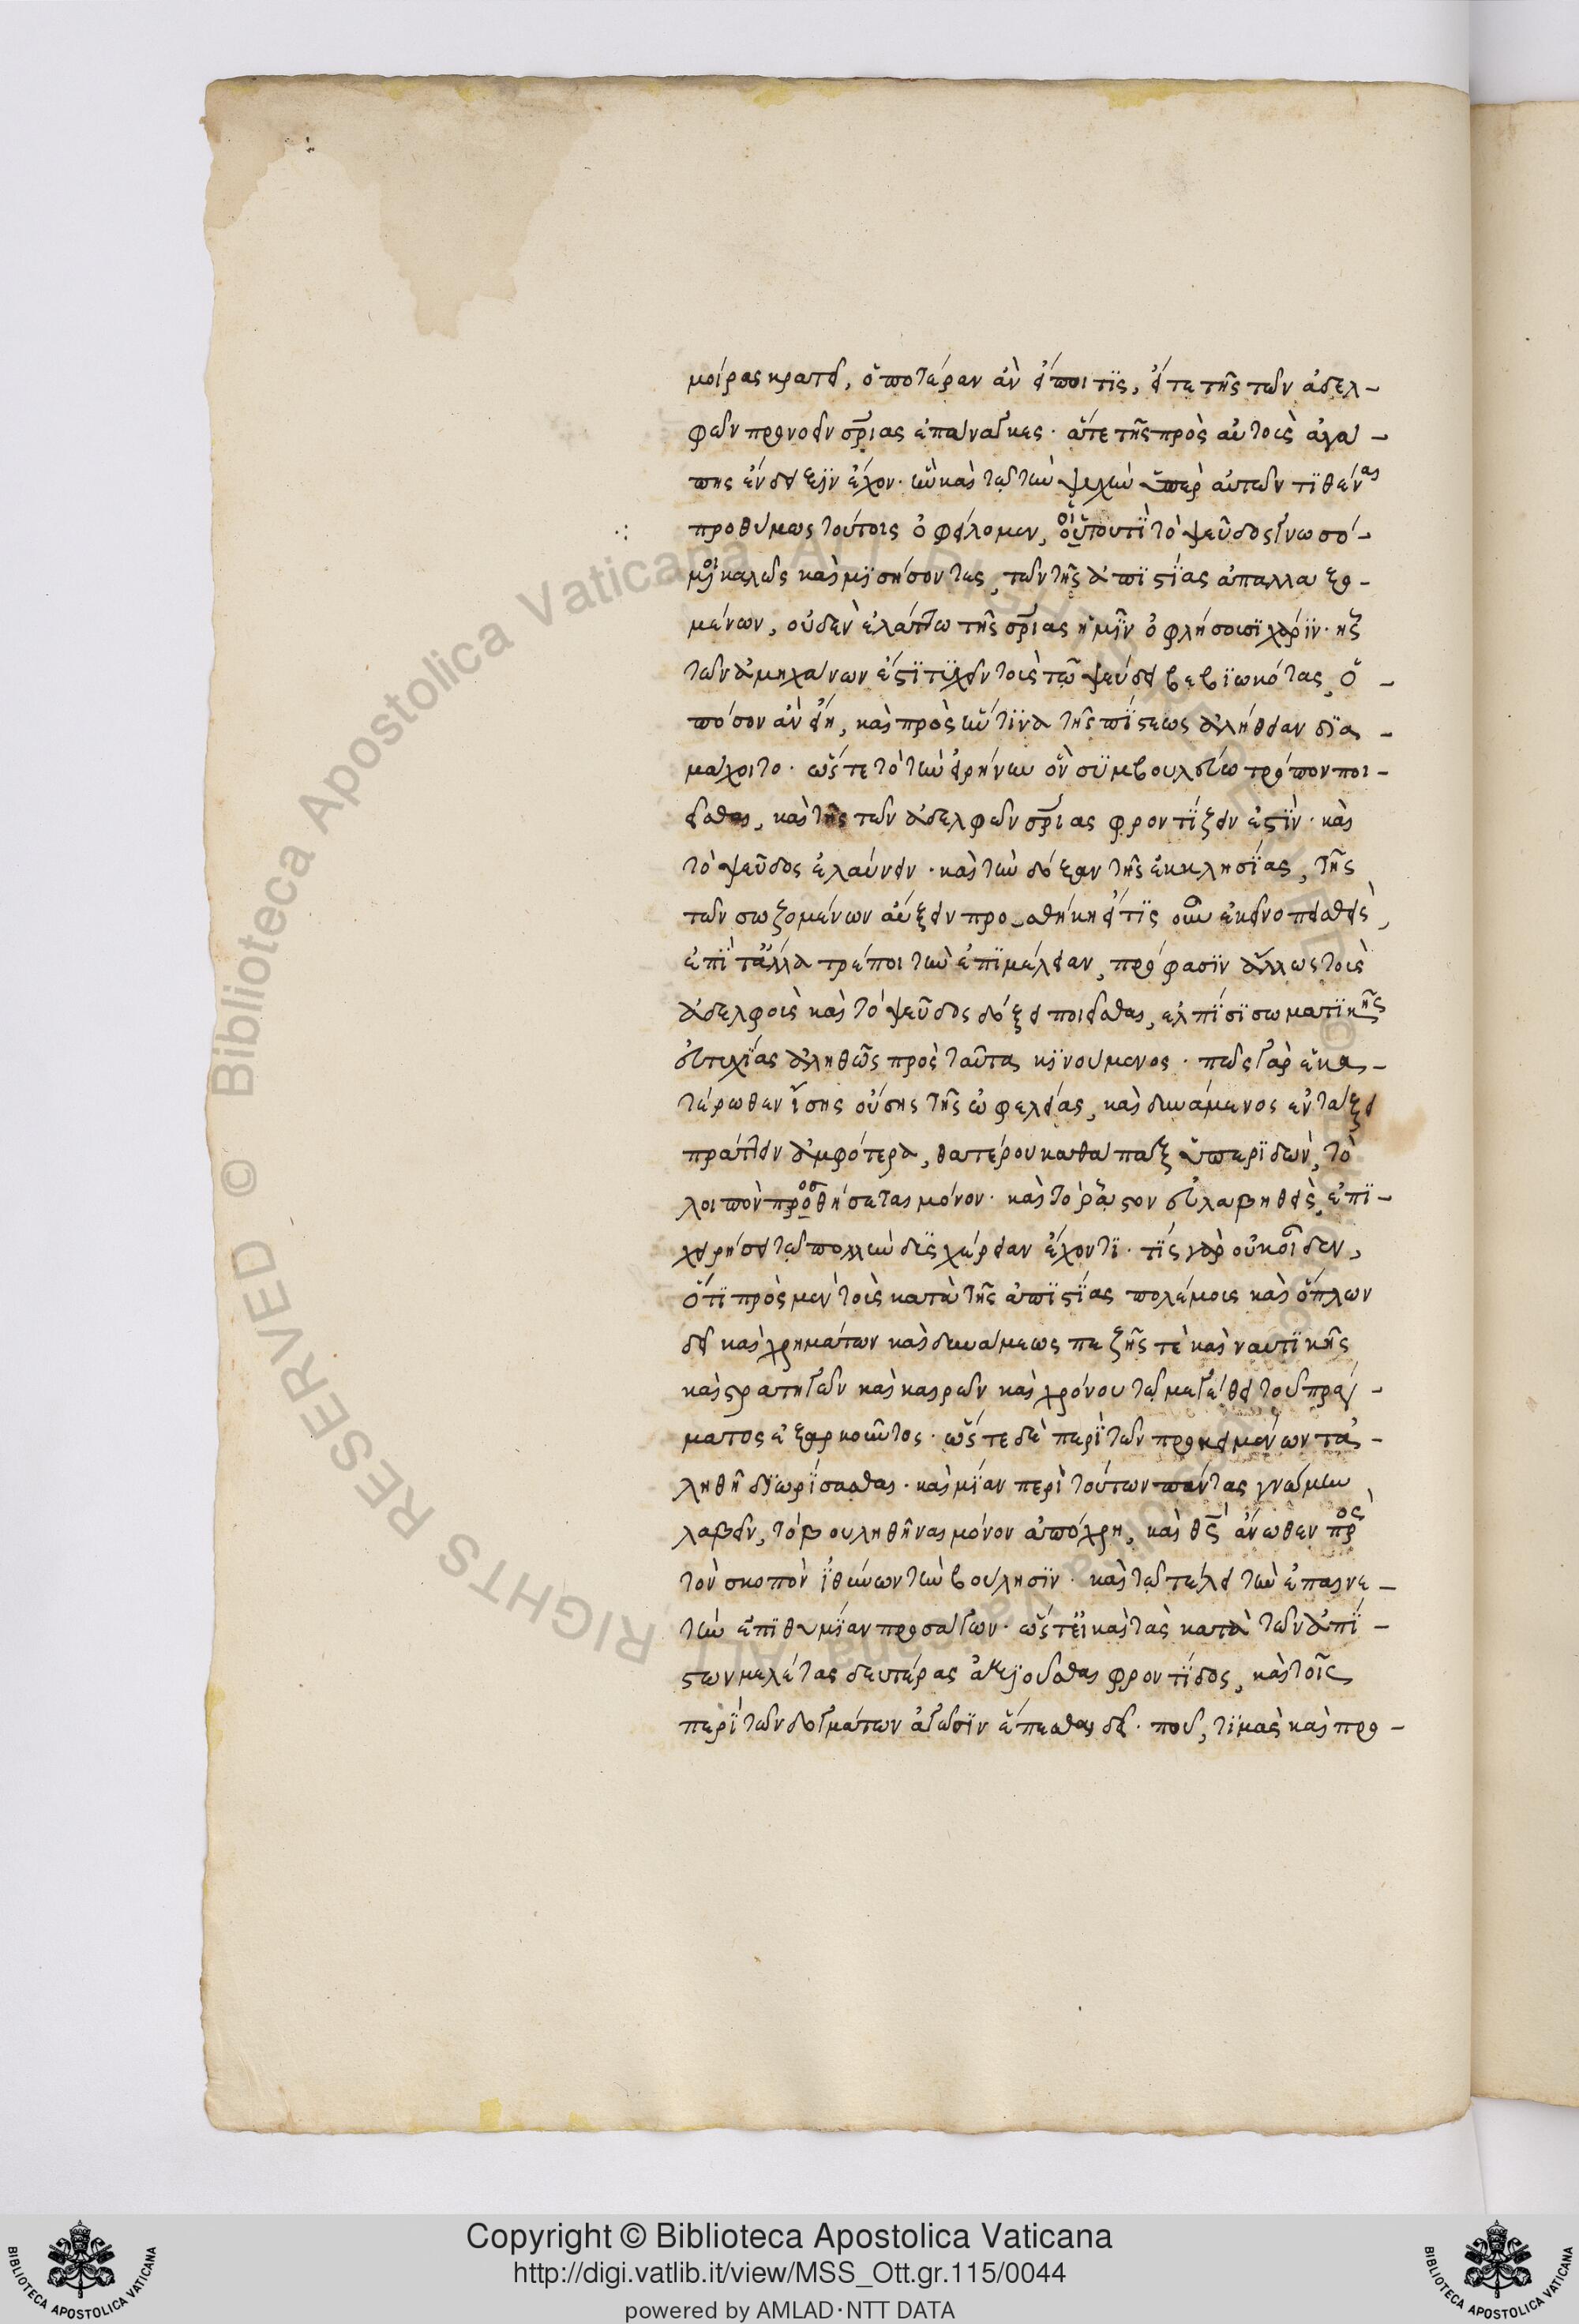 μοίρας κρατεῖ, ὁποτέραν ἂν εἴποι τίς, εἴτε τῆς τῶν ἀδελ-
φῶν προνοεῖν σρίας ἐπάναγκες. αἵτε τῆς πρὸς αὐτοὺς ἀγά-
πης ἔνδειξιν ἔχον. ὧ καὶ τῶ τὴν ψυχὴν ὑπὲρ αὐτῶν τιθέναι
προθύμως τούτοις ὀφείλομεν, οἱ τὸ ψεῦδος γνωσό-
μοι καλῶς καὶ μισήσοντες, τῶν τῆς ἀπιστίας ἀπαλλαξο-
μένων, οὐδὲν ἐλάττω τῆς σρίας ἡμῖν ὀφλήσουσι χάριν.
τῶν ἀμηχάνων ἐστὶ τυχεῖν τοὺς τῶ ψεύδει βεβιωκότας, ὁ-
πόσον ἂν εἴη, καὶ πρὸς ἥντινα τῆς πίστεως ἀλήθειαν δια-
μάχοιτο. ὥστε τὸ τὴν εἰρήνην ὃν συμβουλεύω τρόπον ποι-
εῖσθαι, καὶ τῆς τῶν ἀδελφῶν σρίας φροντίζειν ἐστὶν. καὶ
τὸ ψεῦδος ἐλαύνειν. καὶ τὴν δόξαν τῆς ἐκκλησίας, τῆς
τῶν σωζομένων αὔξειν προσθήκη εἴτις οὖν ἐκεῖνο πεισθεὶς,
ἐπὶ τἄλλα τρέποι τὴν ἐπιμέλειαν, πρόφασιν ἄλλως τοὺς
ἀδελφοὺς καὶ τὸ ψεῦδος δόξει ποιεῖσθαι, ἐλπίσι σωματικῆς
εὐτυχίας ἀληθῶς πρὸς ταῦτα κινούμενος. πῶς γὰρ ἑκα-
τέρωθεν ἴσης οὔσης τῆς ὠφελείας, καὶ δυνάμενος ἐν τάξει
πράττειν ἀμφότερα, θατέρου καθάπαξ ὑπεριδὼν, τὸ
λοιπὸν προθήσεται μόνον. καὶ τὸ ῥᾶστον εὐλαβηθεὶς, ἐπι-
χειρήσει τῶ πολλὴν δυσχέρειαν ἔχοντι. τίς γὰρ οὐκ οἶδεν,
ὅτι πρὸς μὲν τοὺς κατὰ τῆς ἀπιστίας πολέμους καὶ ὅπλων
δεῖ καὶ χρημάτων καὶ δυνάμεως πεζῆς τὲ καὶ ναυτικῆς
καὶ στρατηγῶν καὶ καιρῶν καὶ χρόνου τῶ μεγέθει τοῦ πράγ-
ματος ἐξαρκοῦντος. ὥστε δὲ περὶ τῶν προκειμένων τἀ-
ληθῆ διωρίσασθαι. καὶ μίαν περὶ τούτων πάντας γνώμην
λαβεῖν, τὸ βουληθῆναι μόνον ἀπόχρη, καὶ θς ἄνωθεν πρὸς
τὸν σκοπὸν ἰθύνων τὴν βούλησιν. καὶ τῶ τέλει τὴν ἐπαινε-
τὴν ἐπιθυμίαν προσάγων. ὥστ εἰ καὶ τὰς κατὰ τῶν ἀπί-
στων μελέτας δευτέρας ἀξιοῦσθαι φροντίδος, καὶ τοῖς
περὶ τῶν δογμάτων ἀγῶσιν ἕπεσθαι δεῖ. που, τιμὰς καὶ προ-
Copyright © Biblioteca Apostolica Vaticana
http://digi.vatlib.it/view/MSS_Ott.gr.115/0044
powered by AMLAD·NTT DATA